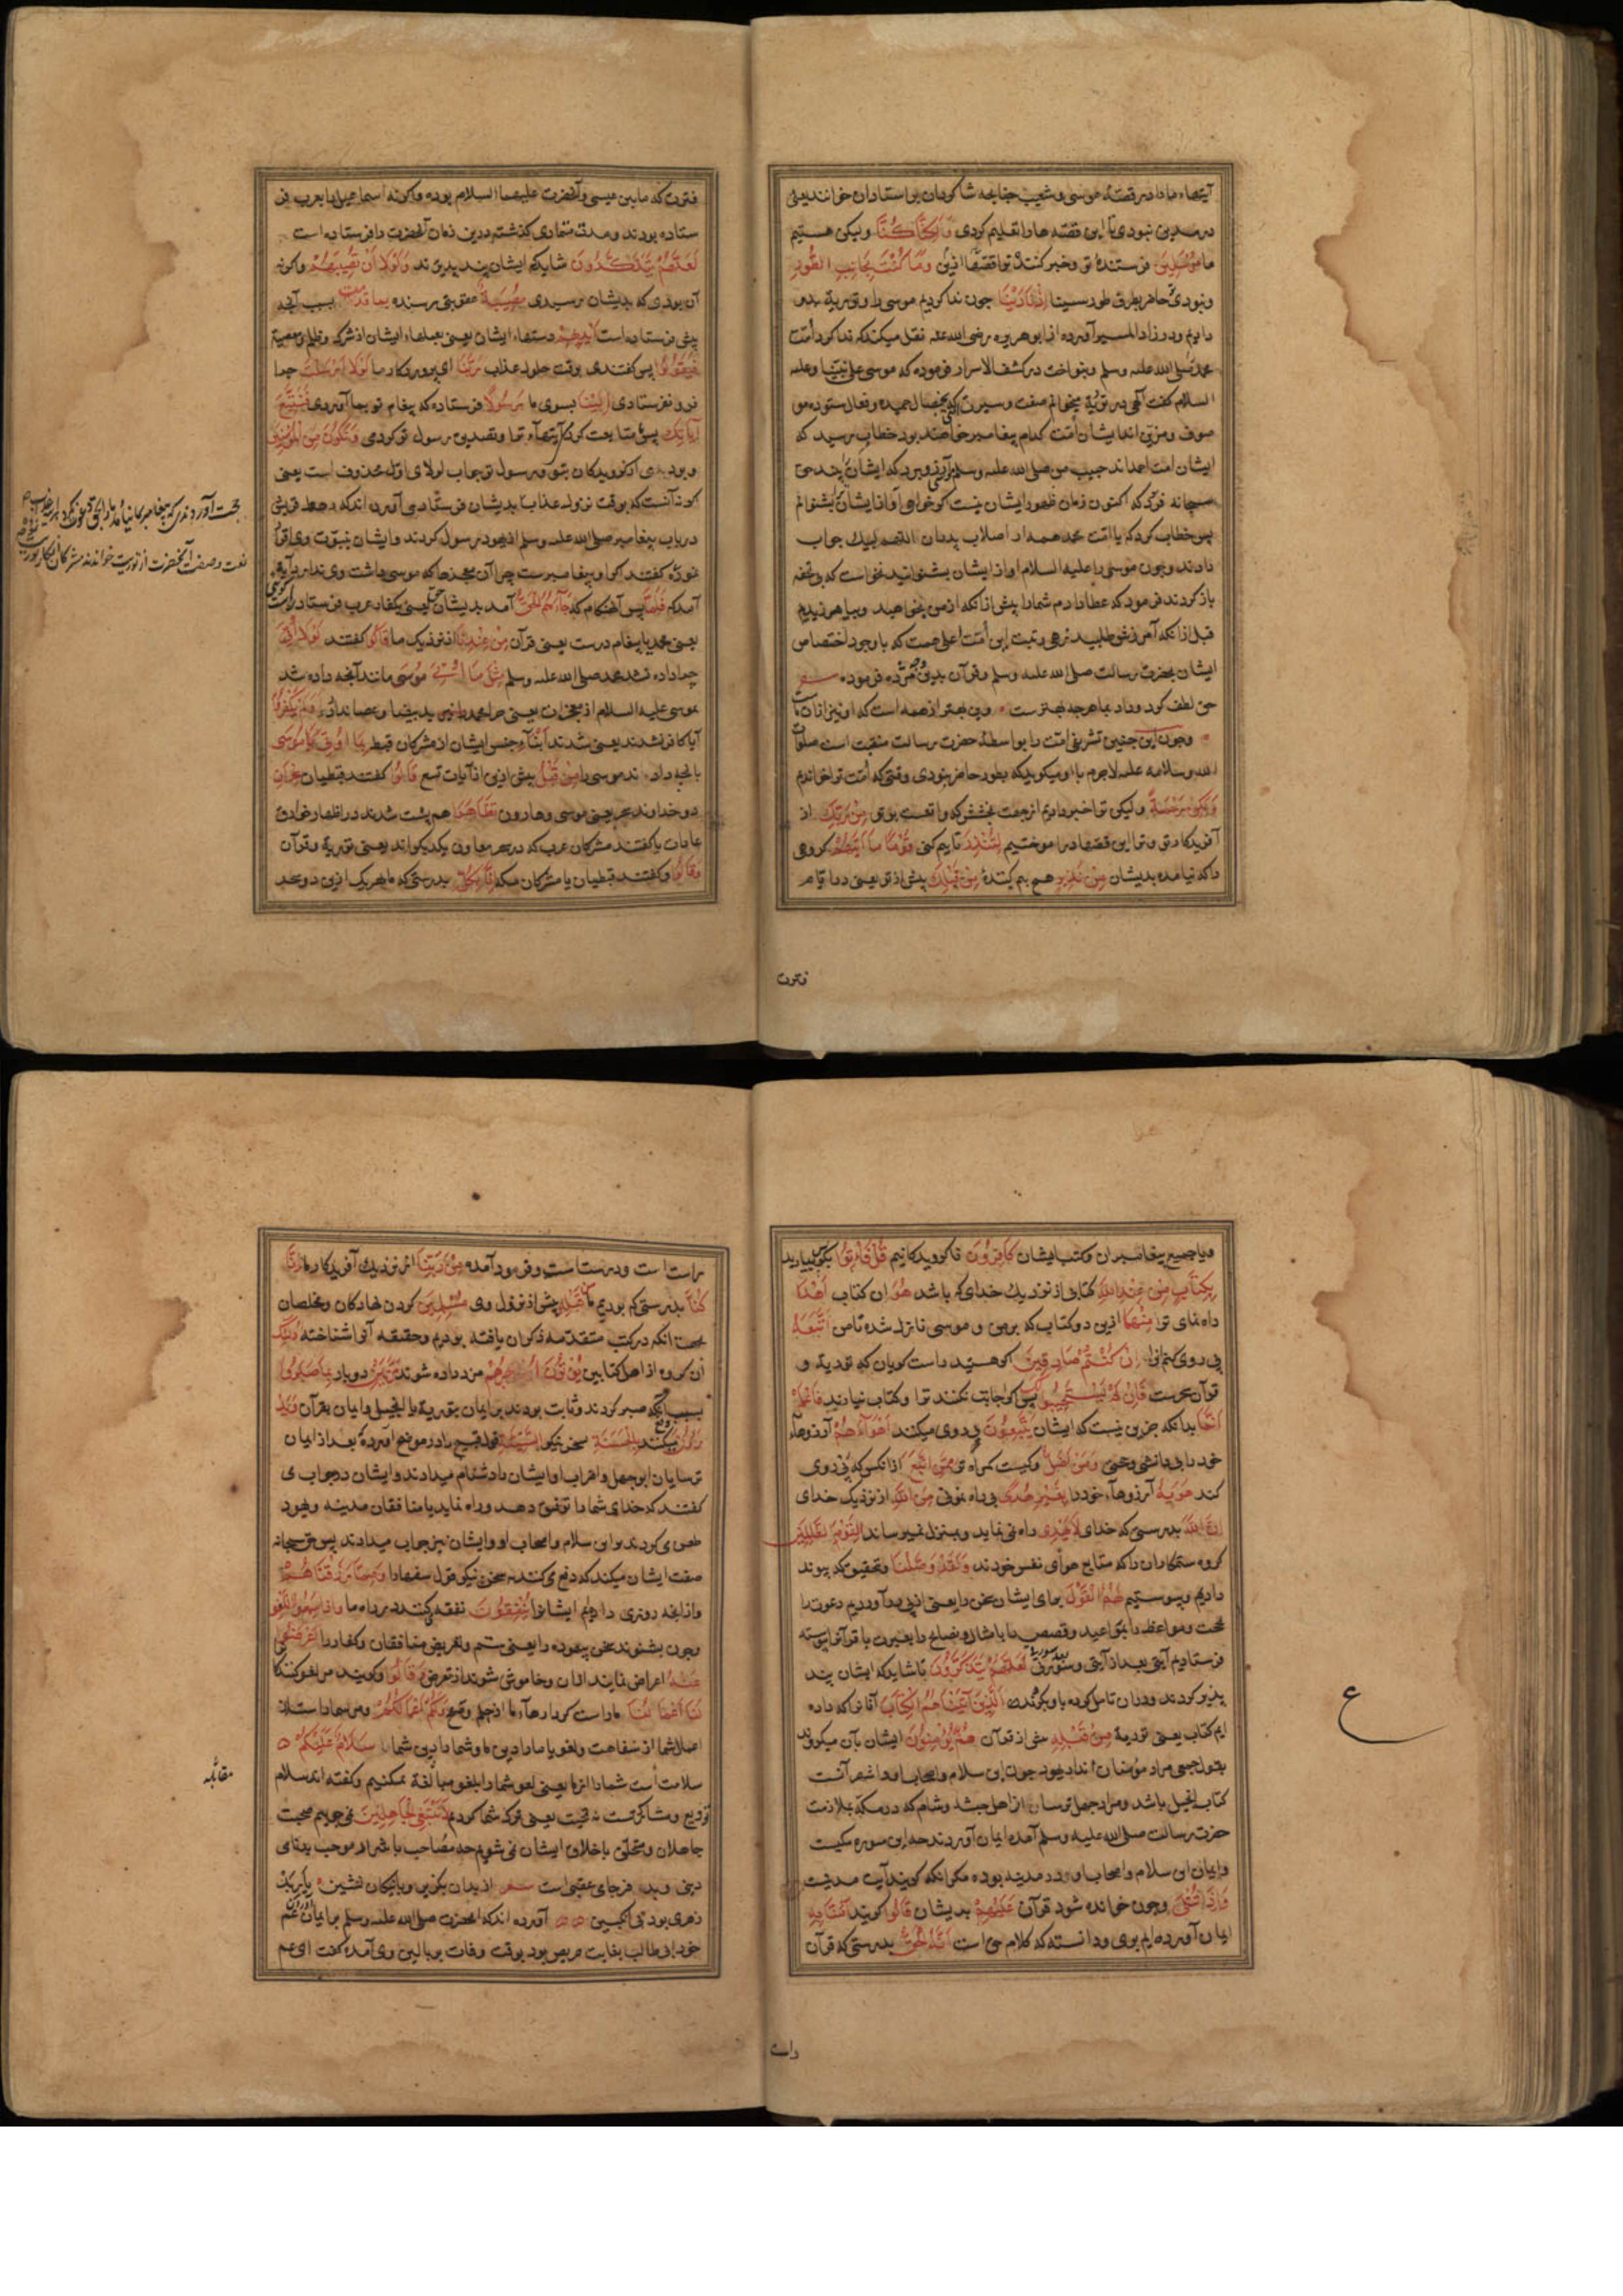 آیتهاء ما دادر قصهٔ موسی و شعیب چنانچه شاکردان بر استادان خوانند یعنی
در مدین نبودی تا این قصه ها را تعلیم کردی وَلَكِنَّا كُنَّا ولیکن هستیم
ما مُرْسِلِينَ فرستندهٔ تو وخبر کنندهٔ تو از قصها ایشان وَمَا كُنْتَ بِجَانِبِ الطُّورِ
ونبودی حاضر بطرف طور سینا إِذْ نَادَيْنَا چون ندا کردیم موسی را وتوریة بدو
دادیم ودر زاد المسیر آورده از ابو هریره رضی الله عنه نقل میکند که ندا کرد امت
محمد صلی الله علیه وسلم وبنواخت در کشف الاسرار فرموده که موسی علی نبینا وعلیه
السلام کفت الهی در توریة میخوانم صفت وسیرت که بخصال حمیده وفعال ستوده مو
صوف ومزین اند ایشان امت کدام پیغامبر خواهند بود خطاب رسید که
ایشان امت احمد اند حبیب من صلی الله علیه وسلم که ایشان چند حق
سبحانه فرمود که اکنون زمان ظهور ایشان نیست کر خواهی آواز ایشان بشنوانم
پس خطاب کرد که یا امت محمد همه از اصلاب پدران اللهم لبیک جواب
دادند وچون موسی را علیه السلام آواز ایشان بشنوانید نخواست که بی تحفه
باز کردند فرمود که عطا دادم شما را پیش از آنکه از من بخواهید وبیامرزیدم
قبل از آنکه آمرزش طلبید رتبت این امت اعلی هست که با وجود اختصاص
ایشان بحضرت رسالت صلی الله علیه وسلم وقرآن بدین مژده فرموده
حق لطف کرد وداد بما هرچه بهترست وین بهتر از همه است که او نیز از آن ماست
وچون این چنین تشریفی امت را بواسطهٔ حضرت رسالت منقبت است صلوات
الله وسلامه علیه لاجرم با او میکوید که بطور حاضر نبودی وقتی که امت ترا خواندم
وَلَكِنْ رَحْمَةً ولیکن ترا خبر دادیم از جهت بخشش که واقعست بر تو مِنْ رَبِّكَ از
آفریدکار تو وترا این قصها در آموختیم لِتُنْذِرَ تا بیم کنی قَوْمًا مَا أَتَاهُمْ کروهی
را که نیامده بدیشان مِنْ نَذِيرٍ هیچ بیم کنندهٔ مِنْ قَبْلِكَ پیش از تو یعنی در ایام
فترت
فترت که مابین عیسی وآنحضرت علیهما السلام بوده وکرنه اسماعیل را بعرب فر
ستاده بودند ومدت متمادی کذشته درین زمان آنحضرت را فرستاده است
لَعَلَّهُمْ يَتَذَكَّرُونَ شاید که ایشان پند پذیرند وَلَوْلَا أَنْ تُصِيبَهُمْ وکرنه
آن بودی که بدیشان رسیدی مُصِيبَةٌ عقوبتی رسنده بِمَا قَدَّمَتْ بسبب آنچه
پیش فرستاده است أَيْدِيهِمْ دستهاء ایشان یعنی بعملهاء ایشان از شرک وظلم ومعصیة
فَيَقُولُوا پس کفتندی بوقت حلول عذاب رَبَّنَا ای پروردکار ما لَوْلَا أَرْسَلْتَ چرا
نفرستادی إِلَيْنَا بسوی ما رَسُولًا فرستاده که پیغام تو بما آوردی فَنَتَّبِعَ
آيَاتِكَ پس متابعت کردی آیتهاء ترا وتصدیق رسول تو کردمی وَنَكُونَ مِنَ الْمُؤْمِنِينَ
وبودمی از کرویدکان بتو وبرسول تو جواب لولای اول محذوف است یعنی
کر نه آنست که بوقت نزول عذاب بدیشان فرستادمی آورده اند که رهط قریش
در باب پیغامبر صلی الله علیه وسلم از یهود سؤال کردند وایشان بنبوت وی اقرار
نموده کفتند اکر او پیغامبرست چرا آن معجزها که موسی داشت وی ندارد آیه
آمد که فَلَمَّا پس آن هنکام که جَاءَهُمُ الْحَقُّ آمد بدیشان حق یعنی بکفار عرب فرستاده راست
یعنی محمد یا پیغام درست یعنی قرآن مِنْ عِنْدِنَا از نزدیک ما قَالُوا کفتند لَوْلَا أُوتِيَ
چرا داده نشد محمد صلی الله علیه وسلم مِثْلَ مَا أُوتِيَ مُوسَى مانند آنچه داده شد
بموسی علیه السلام از معجزات یعنی چرا محمد نیز ید بیضا وعصا ندارد أَوَلَمْ يَكْفُرُوا
آیا کافر نشدند یعنی شدند ابناء جنس ایشان از مشرکان قبط بِمَا أُوتِيَ مُوسَى
بآنچه دادند موسی را مِنْ قَبْلُ پیش ازین از آیات تسع قَالُوا کفتند قبطیان سِحْرَانِ
دو خداوند سحر یعنی موسی وهارون تَظَاهَرَا هم پشت شدند در اظهار خوارق
عادات یا کفتند مشرکان عرب که دو سحر معاون یکدیکر اند یعنی توریة وقرآن
وَقَالُوا وکفتند قبطیان یا مشرکان مکه إِنَّا بِكُلٍّ بدرستی که ما بهریک ازین دو سحر
ویا جمیع پیغامبران وکتب ایشان كَافِرُونَ ناکرویدکانیم قُلْ فَأْتُوا بکو بیارید
بِكِتَابٍ مِنْ عِنْدِ اللَّهِ کتابی از نزدیک خدای که باشد هُوَ آن کتاب أَهْدَى
راه نمای تر مِنْهُمَا ازین دو کتاب که بر من وموسی نازل شده تا من أَتَّبِعْهُ
پی روی کنم آنرا إِنْ كُنْتُمْ صَادِقِينَ اکر هستید راست کویان که توریة و
قرآن سحرست فَإِنْ لَمْ يَسْتَجِيبُوا لَكَ پس اکر اجابت نکنند ترا وکتاب نیارند فَاعْلَمْ
أَنَّمَا بدانکه جزین نیست که ایشان يَتَّبِعُونَ پی روی میکنند أَهْوَاءَهُمْ آرزوهاء
خود را بی دانشی وحجتی وَمَنْ أَضَلُّ وکیست کمراه تر مِمَّنِ اتَّبَعَ از آنکس که پی روی
کند هَوَاهُ آرزوهاء خود را بِغَيْرِ هُدًى بی راه نمونی مِنَ اللَّهِ از نزدیک خدای
إِنَّ اللَّهَ بدرستی که خدای لَا يَهْدِي راه نمی نماید وبمنزل نمیرساند الْقَوْمَ الظَّالِمِينَ
کروه ستمکاران را که متابع هوای نفس خودند وَلَقَدْ وَصَّلْنَا وبتحقیق که پیوند
دادیم وپیوستیم لَهُمُ الْقَوْلَ برای ایشان سخن را یعنی از پی در آوردیم دعوت را
بحجت ومواعظ را بمواعید وقصص را بامثال ونصایح را بعبرت یا قرآنرا پیوسته
فرستادیم آیتی بعد از آیتی وسورتی بعد سورتی لَعَلَّهُمْ يَتَذَكَّرُونَ تا شاید که ایشان پند
پذیر کردند ودر آن تامل کرده باو بکروند الَّذِينَ آتَيْنَاهُمُ الْكِتَابَ آنانرا که داده
ایم کتاب یعنی توریة مِنْ قَبْلِهِ پیش از قرآن هُمْ بِهِ يُؤْمِنُونَ ایشان بآن میکروند
بقول جمعی مراد مؤمنان اند از یهود چون ابن سلام واصحاب او واشهر آنست
کتاب انجیل باشد ومراد چهل ترسا از اهل حبشه وشام که در مکه بملازمت
حضرت رسالت صلی الله علیه وسلم آمده ایمان آوردند چه این سوره مکیست
وایمان ابن سلام واصحاب او در مدینه بوده مکر آنکه کویند آیت مدنیست
وَإِذَا يُتْلَى وچون خوانده شود قرآن عَلَيْهِمْ بدیشان قَالُوا کویند آمَنَّا بِهِ
ایمان آورده ایم بوی ودانسته که کلام حق است إِنَّهُ الْحَقُّ بدرستی که قرآن
راست
ع
راست است ودرست است وفرود آمده مِنْ رَبِّنَا از نزدیک آفریدکار ما إِنَّا
كُنَّا بدرستی که بودیم ما مِنْ قَبْلِهِ پیش از نزول وی مُسْلِمِينَ کردن نهادکان ومخلصان
بجهت آنکه در کتب متقدمه ذکر آن یافته بودیم وحقیقه آنرا شناخته أُولَئِكَ
آن کروه از اهل کتابین يُؤْتَوْنَ أَجْرَهُمْ مزد داده شوند مَرَّتَيْنِ دو بار بِمَا صَبَرُوا
بسبب آنکه صبر کردند وثابت بودند بر ایمان بتوریة یا انجیل وایمان بقرآن وَيَدْ
رَءُونَ ودفع میکنند بِالْحَسَنَةِ بسخن نیکو السَّيِّئَةَ قول قبیح را در موضح آورده بعد از ایمان
ترسایان ابوجهل واضراب او ایشان را دشنام میدادند وایشان در جواب می
کفتند که خدای شما را توفیق دهد وراه نماید یا منافقان مدینه ویهود
طعن می کردند بر ابن سلام واصحاب او وایشان نیز جواب میدادند پس حق سبحانه
صفت ایشان میکند که دفع می کنند بسخن نیکو قول سفها را وَمِمَّا رَزَقْنَاهُمْ
واز آنچه روزی دادیم ایشانرا يُنْفِقُونَ نفقه میکنند در راه ما وَإِذَا سَمِعُوا اللَّغْوَ
وچون بشنوند سخن بیهوده را یعنی شتم وتعریض منافقان وکفار را أَعْرَضُوا
عَنْهُ اعراض نمایند از آن وخاموش شوند از تعرض وَقَالُوا وکویند مر لغو کنندکانرا
لَنَا أَعْمَالُنَا ماراست کردارهاء ما از حلم وصفح وَلَكُمْ أَعْمَالُكُمْ ومر شما راست
اعمال شما از سفاهت ولغو یا ما را دین ما وشما را دین شما سَلَامٌ عَلَيْكُمْ
سلامت است شما را از ما یعنی لغو شما را بلغو مقابله نمیکنیم وکفته اند سلام
تودیع ومتارکتست نه تحیت یعنی ترک شما کردم لَا نَبْتَغِي الْجَاهِلِينَ نمی جوییم صحبت
جاهلان ومتخلق باخلاق ایشان نمی شویم چه مصاحب با شرار موجب بدنامی
دنیی وبد فرجامی عقبی است از بدان بکریز وبا نیکان نشین
زهری بود نی انکبین آورده اند که آنحضرت صلی الله علیه وسلم بر ایمان آوردن عم
خود ابو طالب بغایت حریص بود بوقت وفات بر بالین وی آمده کفت ای عم
مقابله